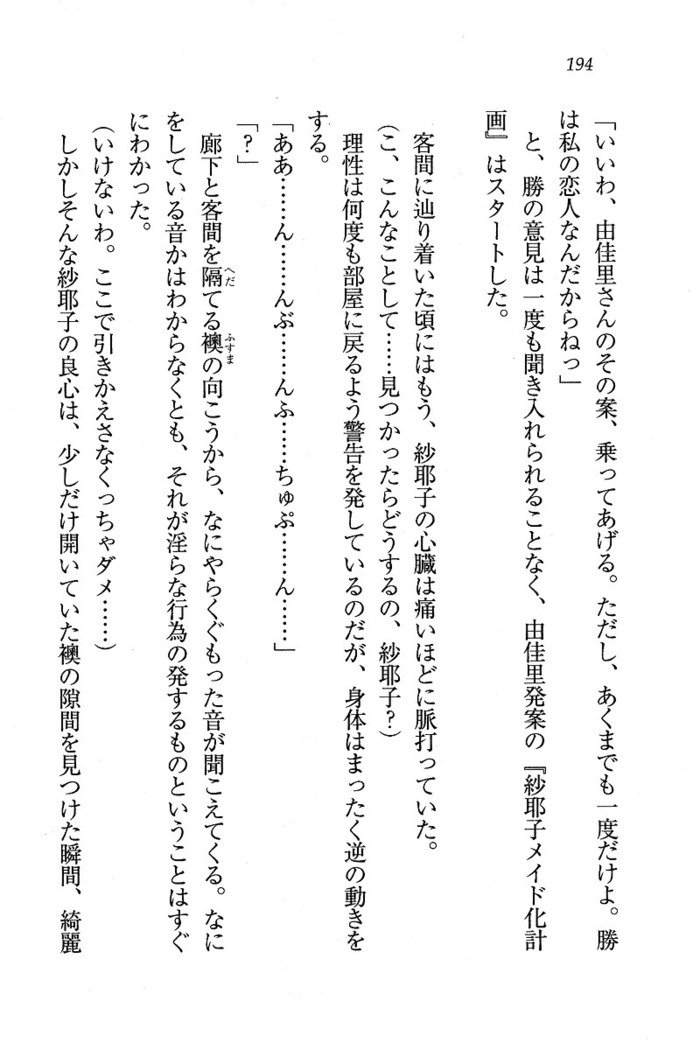 194
「いいわ、由佳里さんのその案、乗ってあげる。ただし、あくまでも一度だけよ。勝
は私の恋人なんだからねっ」
と、勝の意見は一度も聞き入れられることなく、由佳里発案の『紗耶子メイド化計
画』はスタートした。
客間に辿り着いた頃にはもう、紗耶子の心臓は痛いほどに脈打っていた。
（こ、こんなことして……見つかったらどうするの、紗耶子？）
理性は何度も部屋に戻るよう警告を発しているのだが、身体はまったく逆の動きを
する。
「ああ……ん……んぶ……んふ……ちゅぷ……ん……」
「？」
廊下と客間を隔てる襖の向こうから、なにやらくぐもった音が聞こえてくる。なに
をしている音かはわからなくとも、それが淫らな行為の発するものということはすぐ
にわかった。
（いけないわ。ここで引きかえさなくっちゃダメ……）
しかしそんな紗耶子の良心は、少しだけ開いていた襖の隙間を見つけた瞬間、綺麗